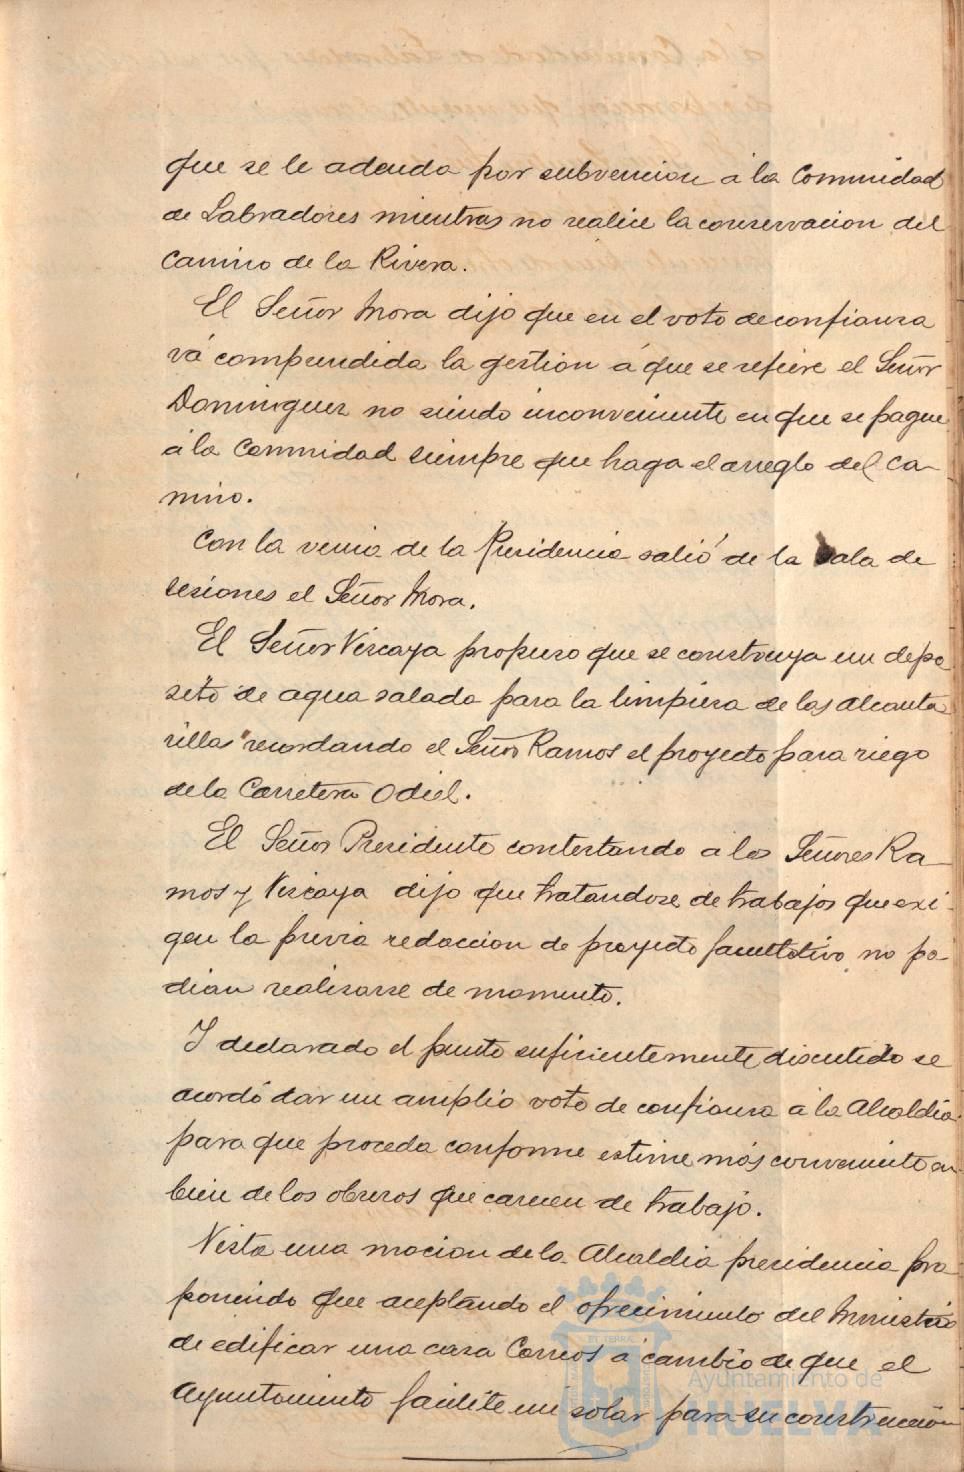 que se le adeuda por subvencion á la Comunidad
de Labradores mientras no realice la conservacion del
Camino de la Rivera.
El Señor Mora dijo que en el voto de confianza
vá comprendida la gestion á que se refiere el Señor
Dominguez no siendo inconveniente en que se pague
á la Comunidad siempre que haga el arreglo del ca-
mino.
Con la venia de la Presidencia salió de la sala de
sesiones el Señor Mora.
El Señor Vizcaya propuso que se construya un depo
sito de agua salada para la limpieza de las alcanta
rillas recordando el Señor Ramos el proyecto para riego
de la Carretera Odiel.
El Señor Presidente contestando a los Señores Ra-
mos y Vizcaya dijo que tratandose de trabajos que exi-
gen la previa redaccion de proyecto facultativo no po-
dian realizarse de momento.
Y declarado el punto suficientemente discutido se
acordó dar un amplio voto de confianza á la Alcaldia
para que proceda conforme estime más conveniente en
bien de los obreros que carecen de trabajo.
Vista una mocion de la Alcaldia presidencia pro-
poniendo que aceptando el ofrecimiento del Ministerio
de edificar una casa Correos á cambio de que el
Ayuntamiento facilite un solar para su construcción
Ayuntamiento de
HUELVA